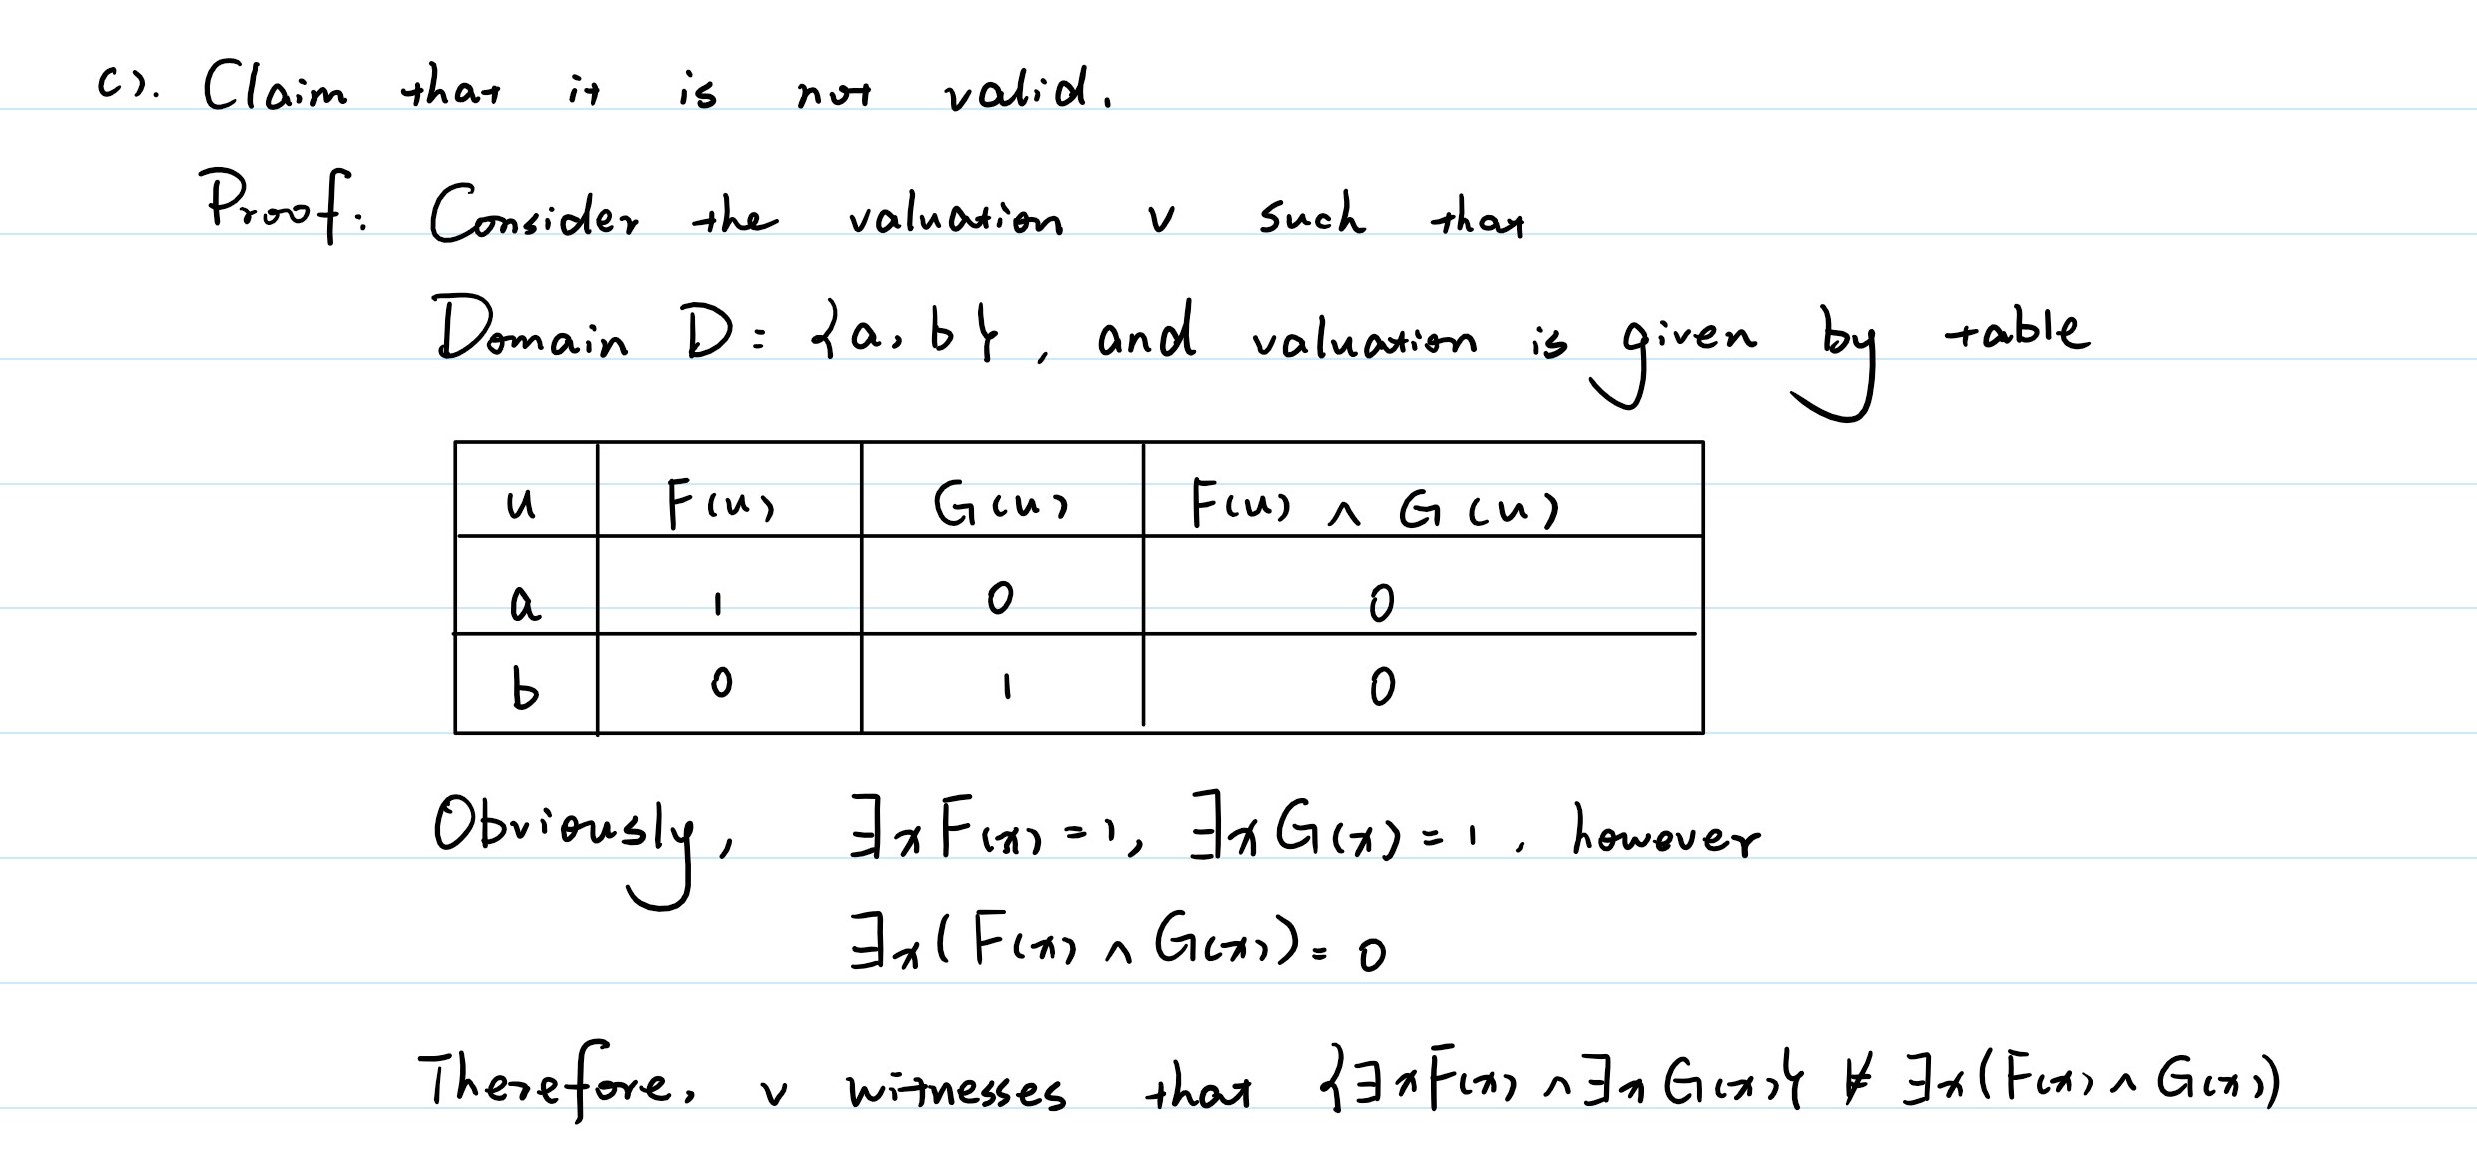 c). Claim that it is not valid.
Proof: Consider the valuation v such that
Domain D = {a, b}, and valuation is given by table
u F(u) G(u) F(u) ∧ G(u)
a 1 0 0
b 0 1 0
Obviously, ∃xF(x) = 1, ∃xG(x) = 1, however
∃x(F(x) ∧ G(x)) = 0
Therefore, v witnesses that {∃xF(x) ∧ ∃xG(x)} ⊭ ∃x(F(x) ∧ G(x))